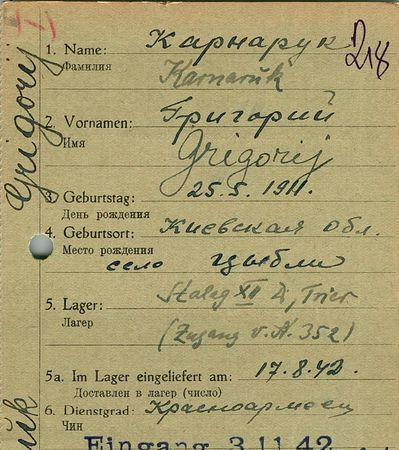 218
Grigorij
1. Name: Карнарук
Фамилия Karnaruk
2. Vornamen: Григорий
Имя Grigorij
3. Geburtstag: 25.5.1911.
День рождения
4. Geburtsort: Киевская обл.
Место рождения
село Цыбли
5. Lager: Stalag XII D, Trier
Лагер (Zugang v. A. 352)
5a. Im Lager eingeliefert am: 17.8.42.
Доставлен в лагер (число)
6. Dienstgrad: Красноармеец
Чин
Eingang 3.11.42